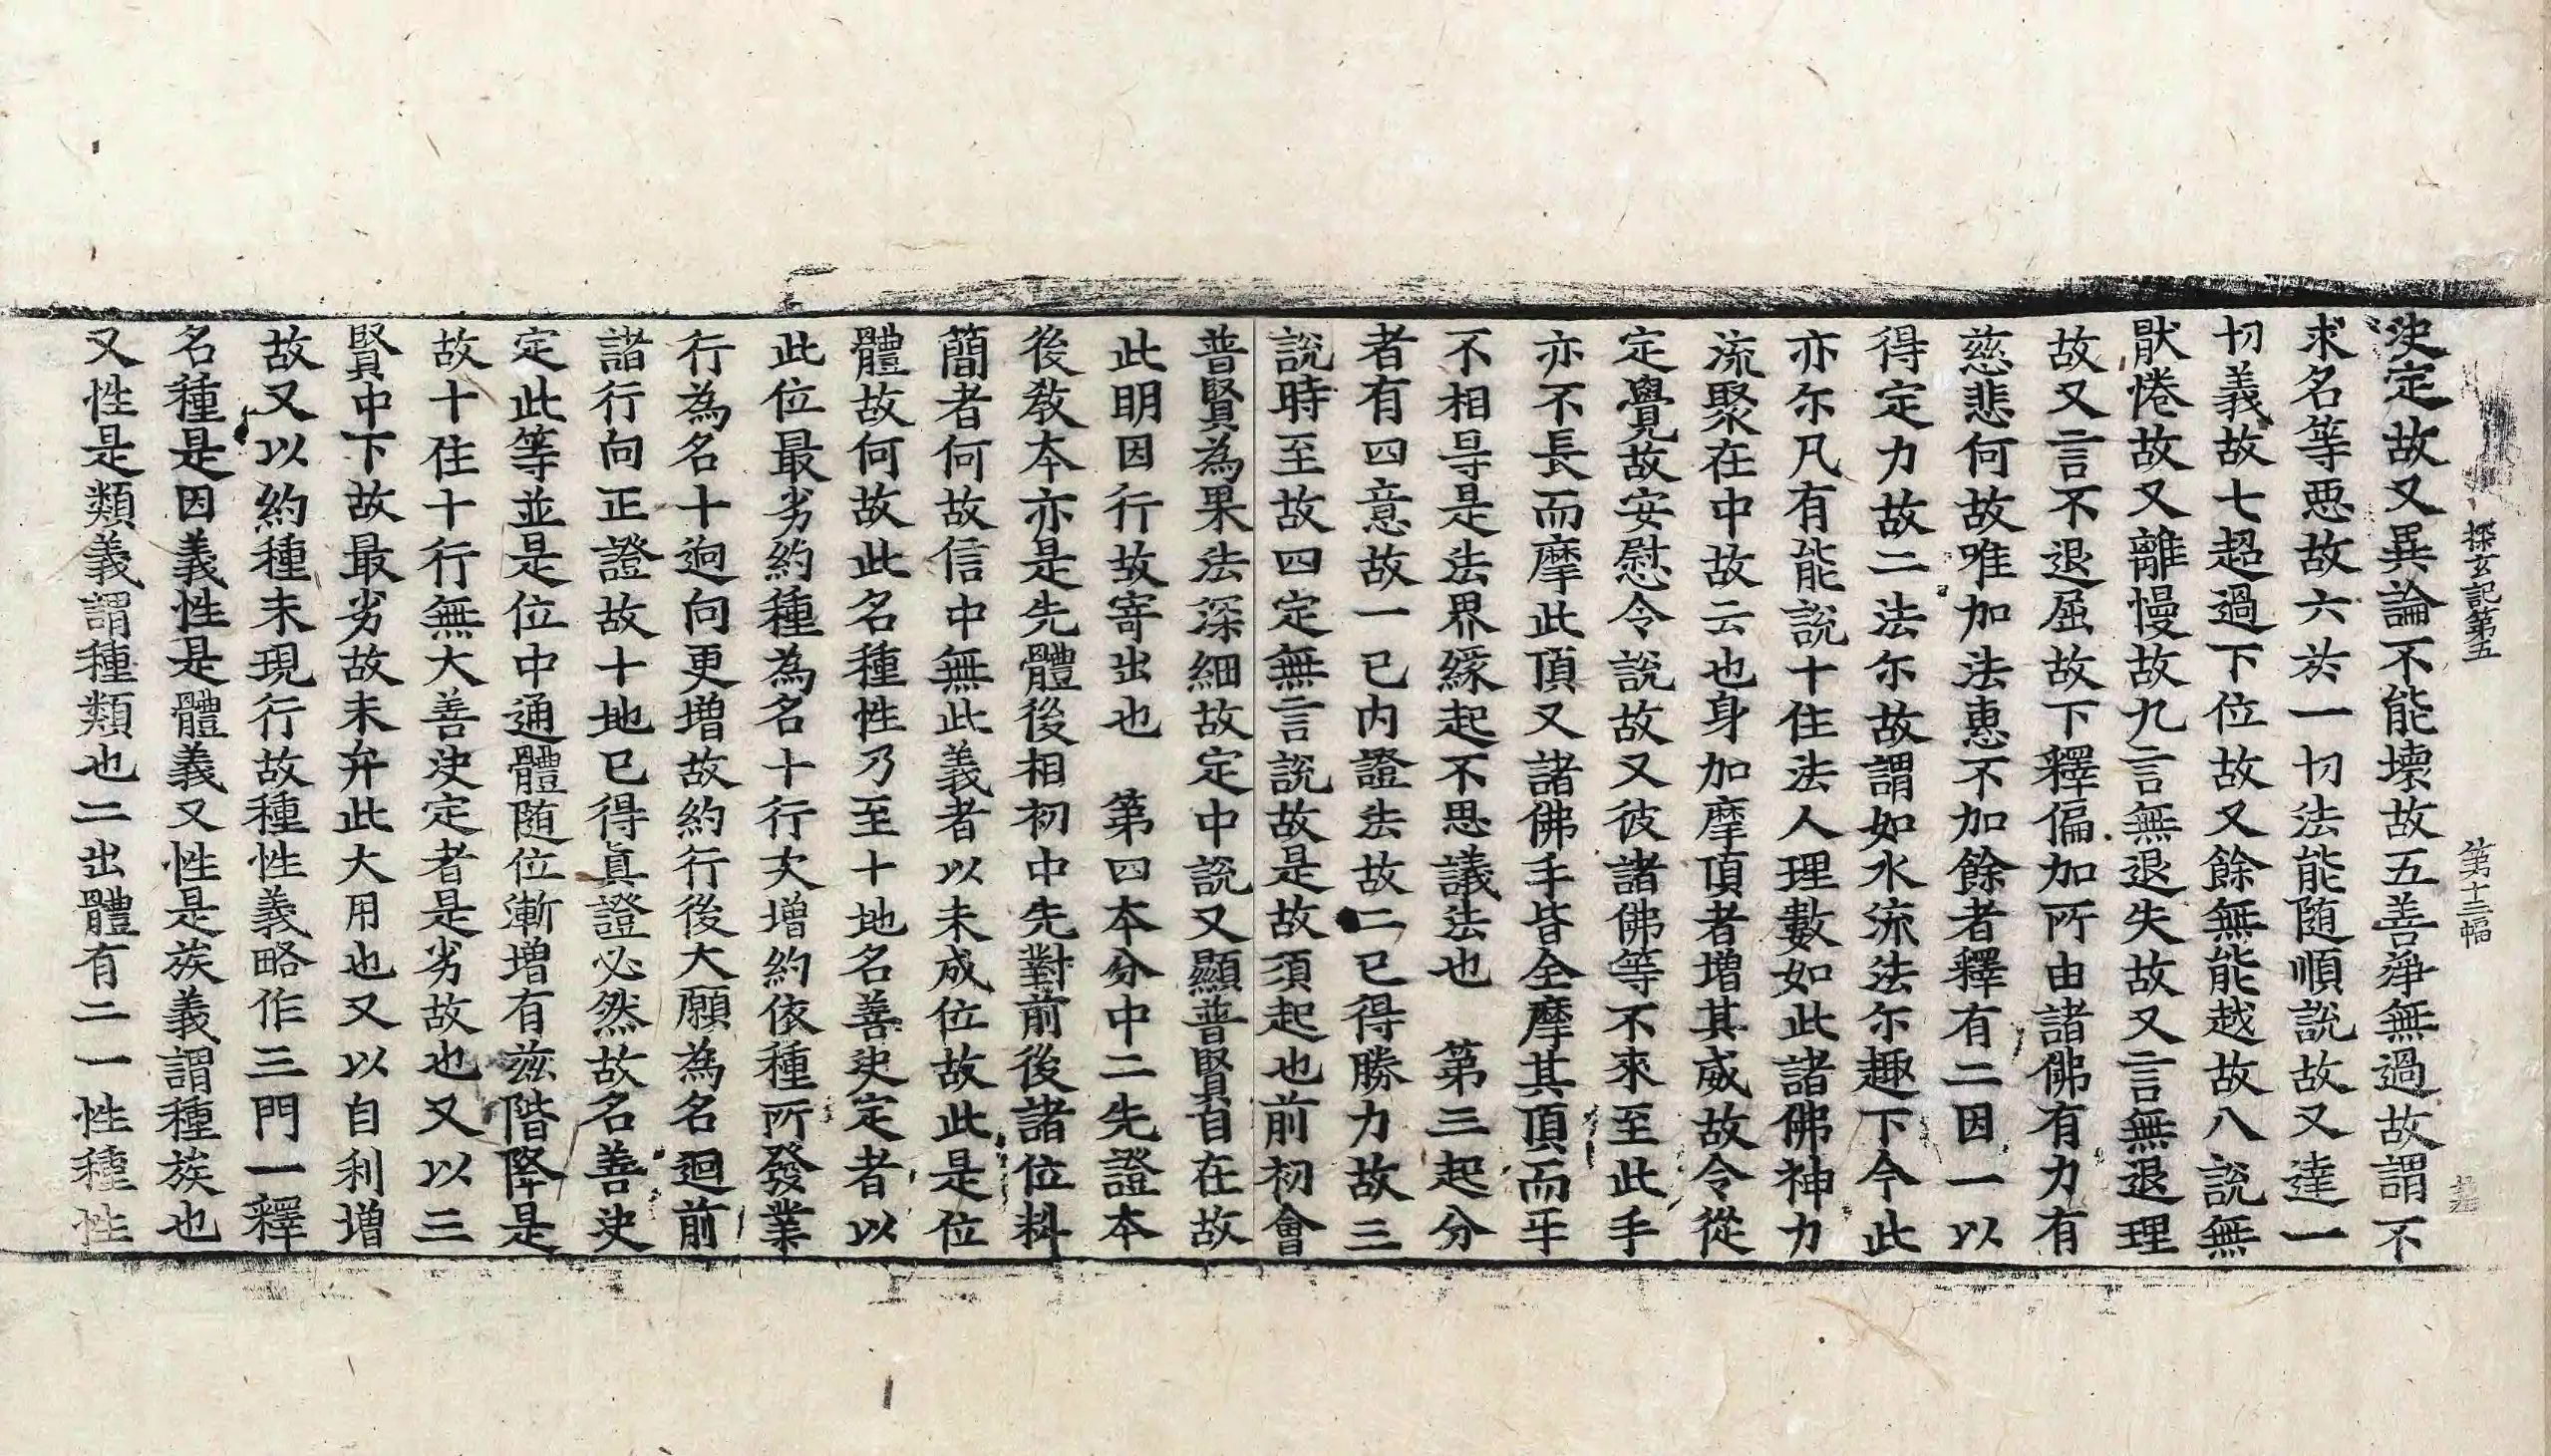 探玄記第五　第十三幅
決定故又異論不能壞故五善淨無過故謂不
求名等惡故六於一切法能随順說故又達一
切義故七超過下位故又餘無能越故八說無
猒惓故又離慢故九言無退失故又言無退理
故又言不退屈故下釋偏加所由諸佛有力有
慈悲何故唯加法惠不加餘者釋有二因一以
得定力故二法尓故謂如水流法尓趣下今此
亦尓凡有能說十住法人理數如此諸佛神力
流聚在中故云也身加摩頂者增其威故令從
定覺故安慰令說故又彼諸佛等不來至此手
亦不長而摩此頂又諸佛手皆全摩其頂而手
不相㝵是法界緣起不思議法也　第三起分
者有四意故一已內證法故二已得勝力故三
說時至故四定無言說故是故須起也前初會
普賢為果法深細故定中說又顯普賢自在故
此明因行故寄出也　第四本分中二先證本
後教本亦是先體後相初中先對前後諸位料
簡者何故信中無此義者以未成位故此是位
體故何故此名種性乃至十地名善決定者以
此位最劣約種為名十行次增約依種所發業
行為名十迴向更增故約行後大願為名迴前
諸行向正證故十地已得真證必然故名善決
定此等並是位中通體随位漸增有茲階降是
故十住十行無大善決定者是劣故也又以三
賢中下故最劣故未弁此大用也又以自利增
故又以約種未現行故種性義略作三門一釋
名種是因義性是體義又性是族義謂種族也
又性是類義謂種類也二出體有二一性種性